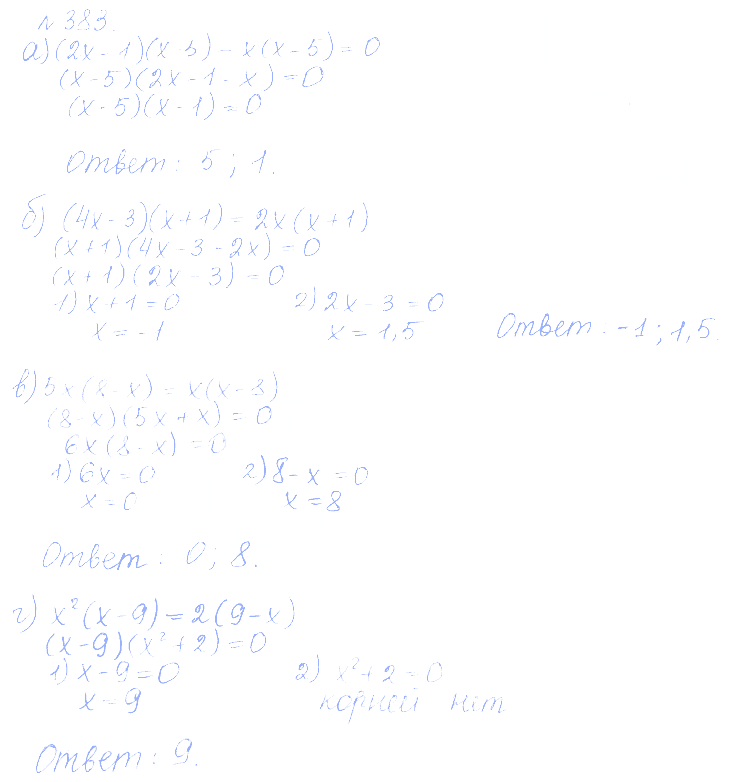 № 383.
а) (2x - 1)(x - 5) - x(x - 5) = 0
(x - 5)(2x - 1 - x) = 0
(x - 5)(x - 1) = 0
Ответ: 5; 1.
б) (4x - 3)(x + 1) = 2x(x + 1)
(x + 1)(4x - 3 - 2x) = 0
(x + 1)(2x - 3) = 0
1) x + 1 = 0 2) 2x - 3 = 0
x = -1 x = 1,5 Ответ: -1; 1,5.
в) 5x(8 - x) = x(x - 8)
(8 - x)(5x + x) = 0
6x(8 - x) = 0
1) 6x = 0 2) 8 - x = 0
x = 0 x = 8
Ответ: 0; 8.
г) x²(x - 9) = 2(9 - x)
(x - 9)(x² + 2) = 0
1) x - 9 = 0 2) x² + 2 = 0
x = 9 корней нет
Ответ: 9.